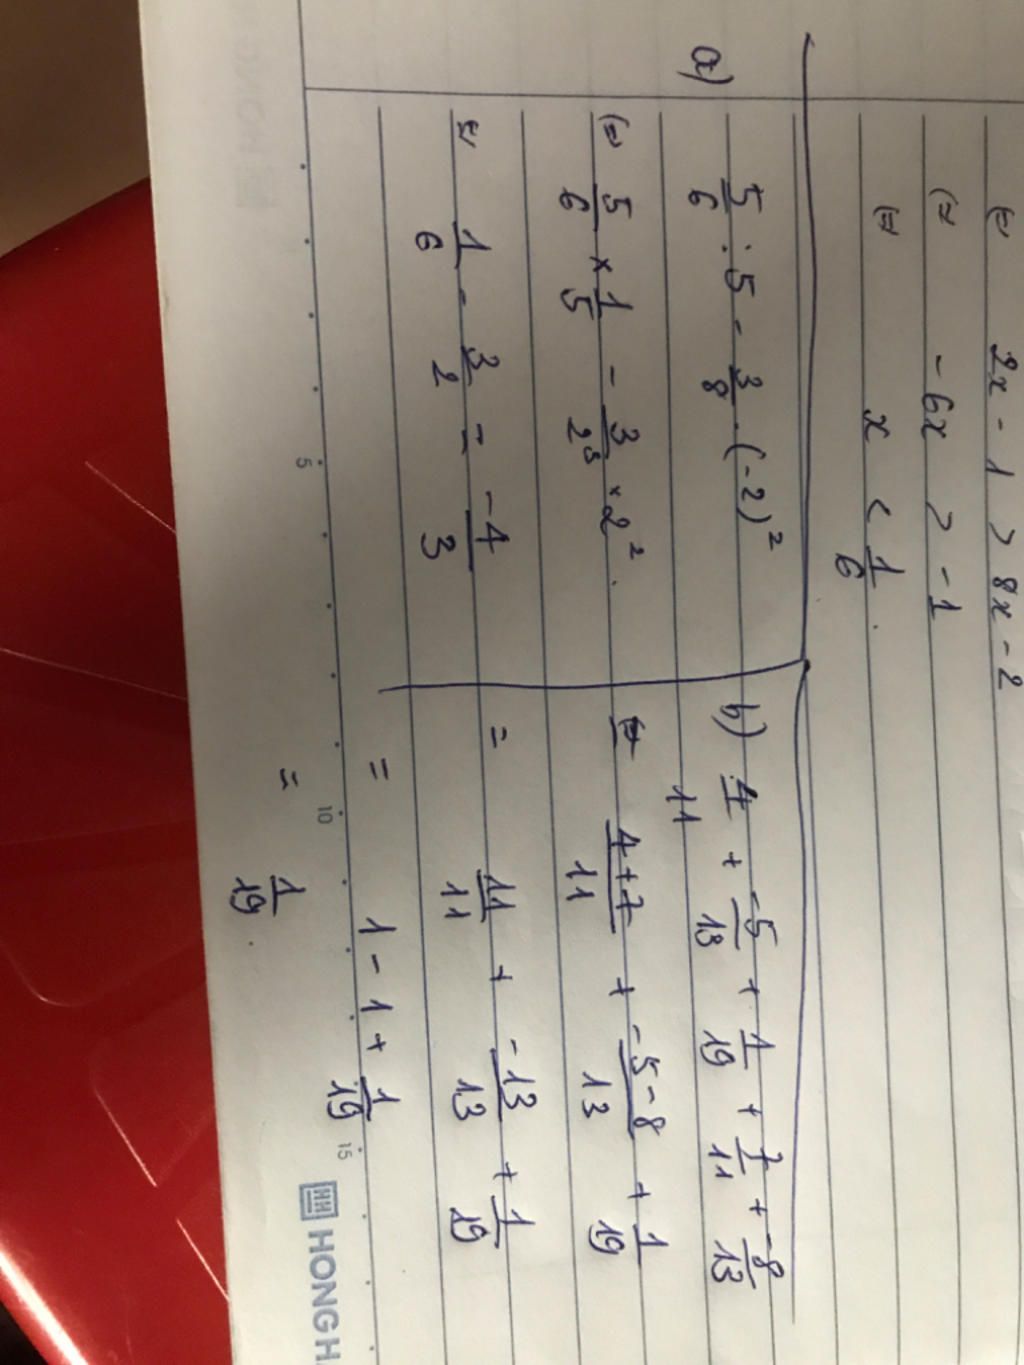 (=) 2x - 1 > 8x - 2
(=) - 6x > - 1
(=) x < 1/6 .
a) 5/6 : 5 - 3/8 . (-2)²
(=) 5/6 × 1/5 - 3/2³ × 2² .
(=) 1/6 - 3/2 = -4/3
b) 4/11 + -5/13 + 1/19 + 7/11 + -8/13
= 4+7/11 + -5-8/13 + 1/19
= 11/11 + -13/13 + 1/19
= 1 - 1 + 1/19
= 1/19 .
5
10
15
HONG H